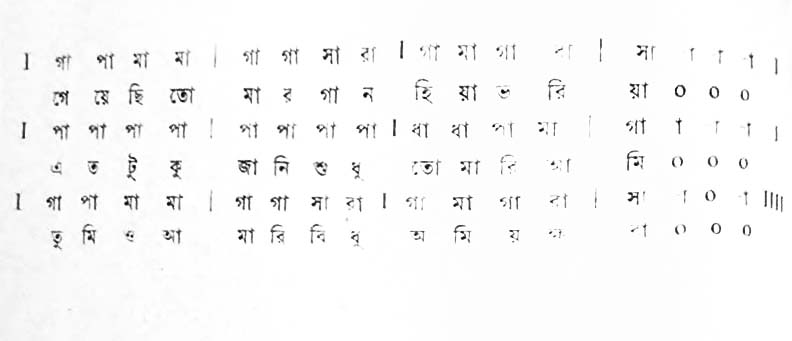 I গা পা মা মা | গা গা সা রা I গা মা গা রা | সা া া া |
গে য়ে ছি তো মা র গা ন হি য়া ভ রি য়া ০ ০ ০
I পা পা পা পা | পা পা পা পা I ধা ধা পা মা | গা া া া |
এ ত টু কু জা নি শু ধু তো মা রি আ মি ০ ০ ০
I গা পা মা মা | গা গা সা রা I গা মা গা রা | সা া ০ া IIII
তু মি ও আ মা রি বি ধু অ মি য় ০ ০ ০